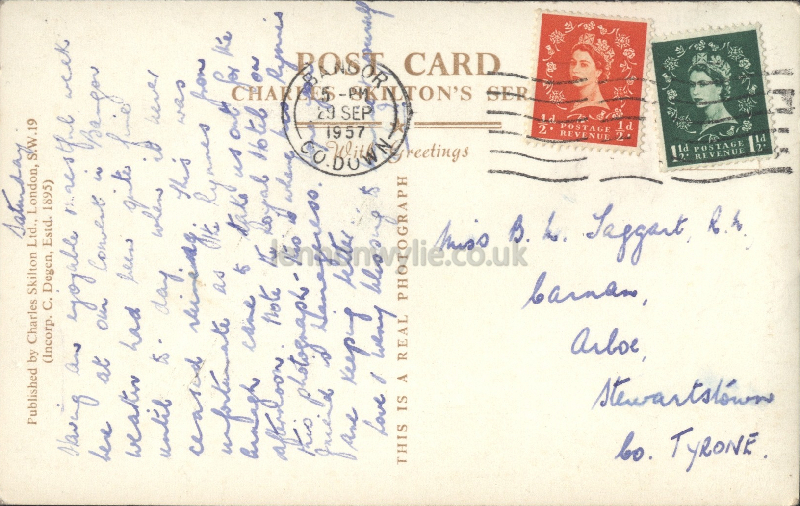 POST CARD
CHARLES SKILTON'S SER
With Greetings
BANGOR
5 - PM
29 SEP
1957
CO. DOWN
½d ½d
POSTAGE
REVENUE
1½d 1½d
POSTAGE
REVENUE
Published by Charles Skilton Ltd., London, S.W.19
(Incorp. C. Degen, Estd. 1895)
THIS IS A REAL PHOTOGRAPH
Saturday
Having an enjoyable & restful week
here at our Convent in Bangor
weather had been quite good
until to-day when it never
ceased raining. This was
unfortunate as the Lymes from
Armagh came to take us out for the
afternoon. Note the Royal Hotel on
this photograph - this is where
friend is Manageress.
are keeping better
Love & many blessings
Miss B. M. Taggart, R.N.
Carnan,
Arboe,
Stewartstown
Co. TYRONE.
lennonwylie.co.uk